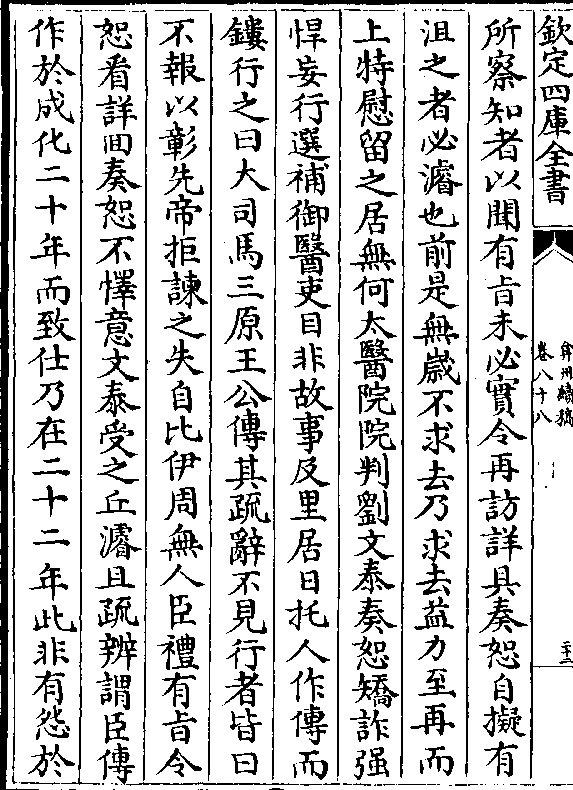 欽定四庫全書
弇州續稿
卷八十八
二十三
所察知者以聞有旨未必實令再訪詳具奏恕自擬有
沮之者必濬也前是無嵗不求去乃求去益力至再而
上特慰留之居無何太醫院院判劉文泰奏恕矯詐强
悍妄行選補御醫吏目非故事及里居日托人作傳而
鏤行之曰大司馬三原王公傳其疏辭不見行者皆曰
不報以彰先帝拒諫之失自比伊周無人臣禮有旨令
恕看詳囘奏恕不懌意文泰受之丘濬且疏辨謂臣傳
作於成化二十年而致仕乃在二十二年此非有怨於